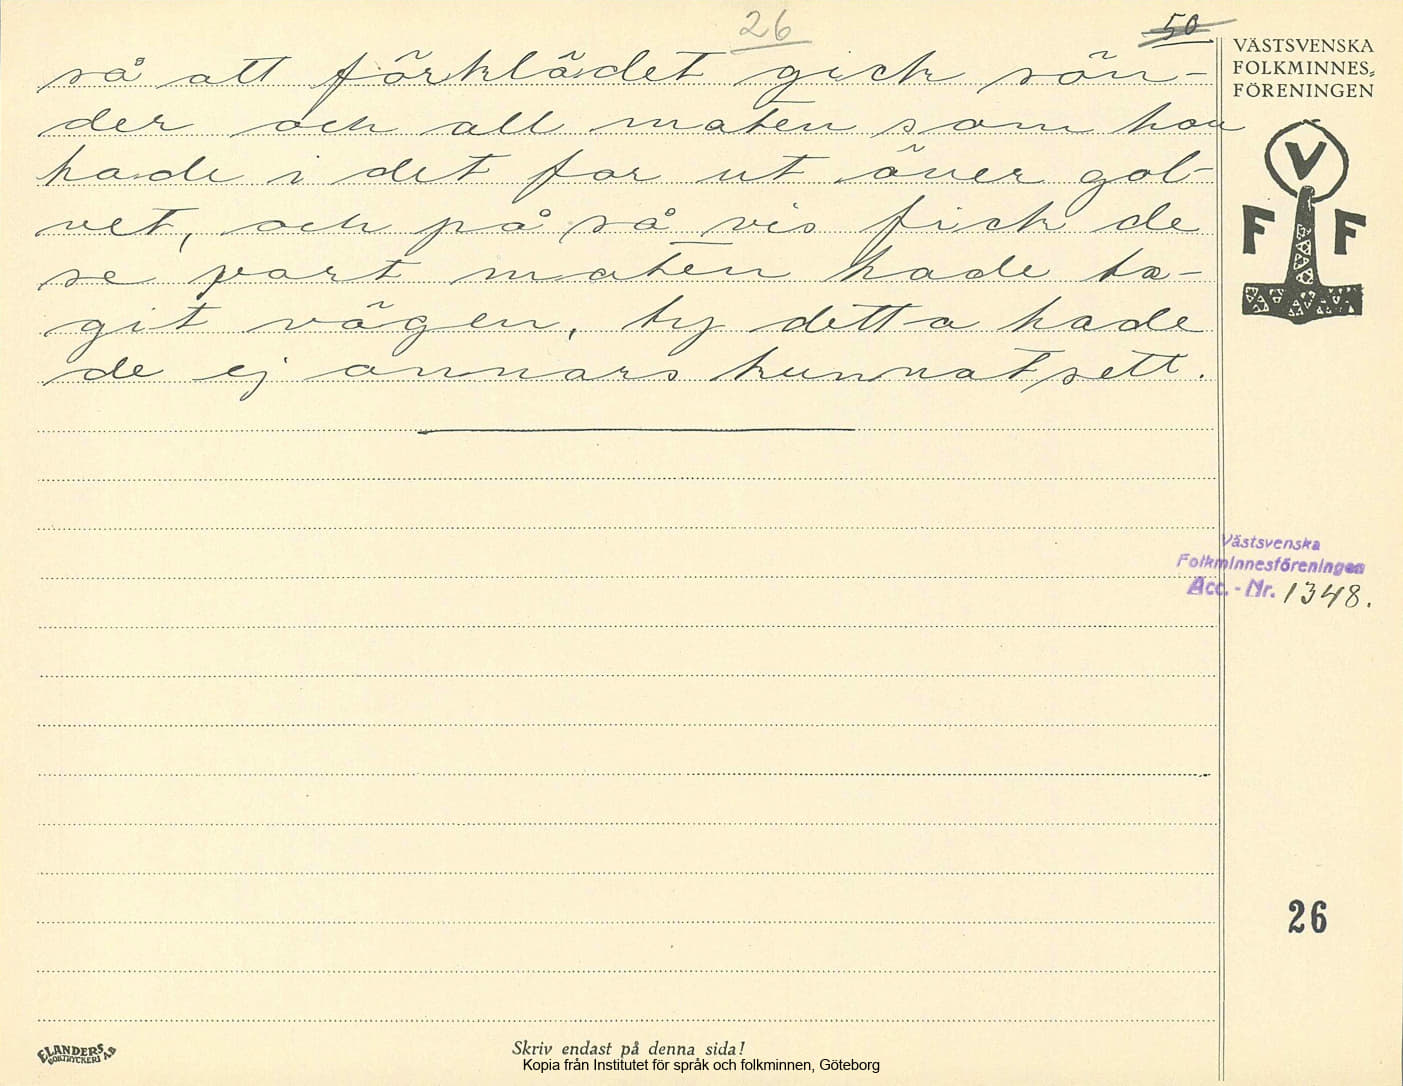 26
50
så att förklädet gick sön-
der och all maten som hon
hade i det for ut över gol-
vet, och på så vis fick de
se vart maten hade ta-
git vägen, ty detta hade
de ej annars kunnat sett.
VÄSTSVENSKA
FOLKMINNES-
FÖRENINGEN
V
F F
Västsvenska
Folkminnesföreningen
Acc. - Nr. 1348.
26
ELANDERS
BOKTRYCKERI A.B
Skriv endast på denna sida!
Kopia från Institutet för språk och folkminnen, Göteborg